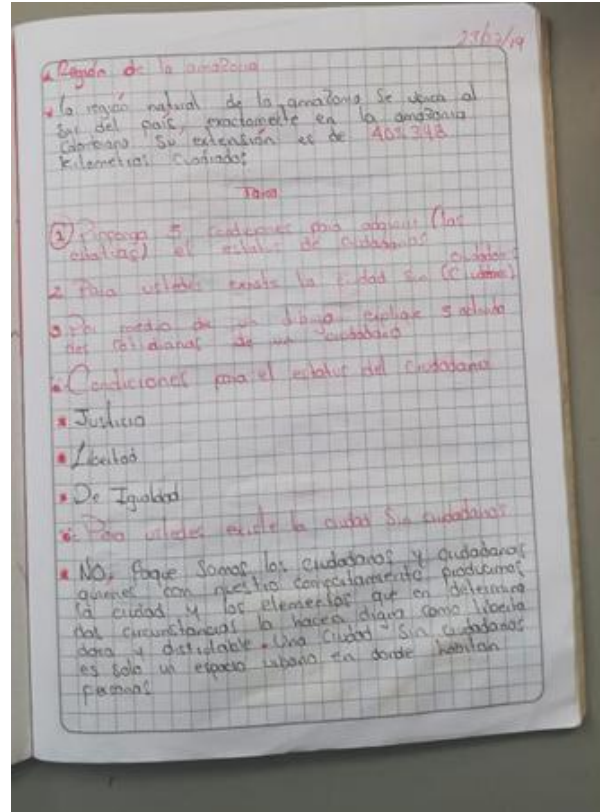 Región de la amazona
la región natural de la amazona se ubica al
sur del país, exactamente en la amazonia
Colombiano su extensión es de 403.348
Kilometros Cuadrados
Tarea
① Proponga 5 condiciones para adquirir (las
) el estatus de ciudadanos
2. Para ustedes existe la ciudad sin ciudadanos
3 Por medio de un dibujo explique 5 
des cotidianas de un ciudadano
Condiciones para el estatus del ciudadano
Justicia
Libertad
De Igualdad
Para ustedes existe la ciudad sin ciudadanos
NO, Poque Somos los ciudadanos y ciudadanas
quienes con nuestro comportamiento producimos
la ciudad y los elementos que en determina
das circunstancias la hacen digna como libera
dora y disfrutable. Una ciudad sin ciudadanos
es solo un espacio urbano en donde habitan
personas